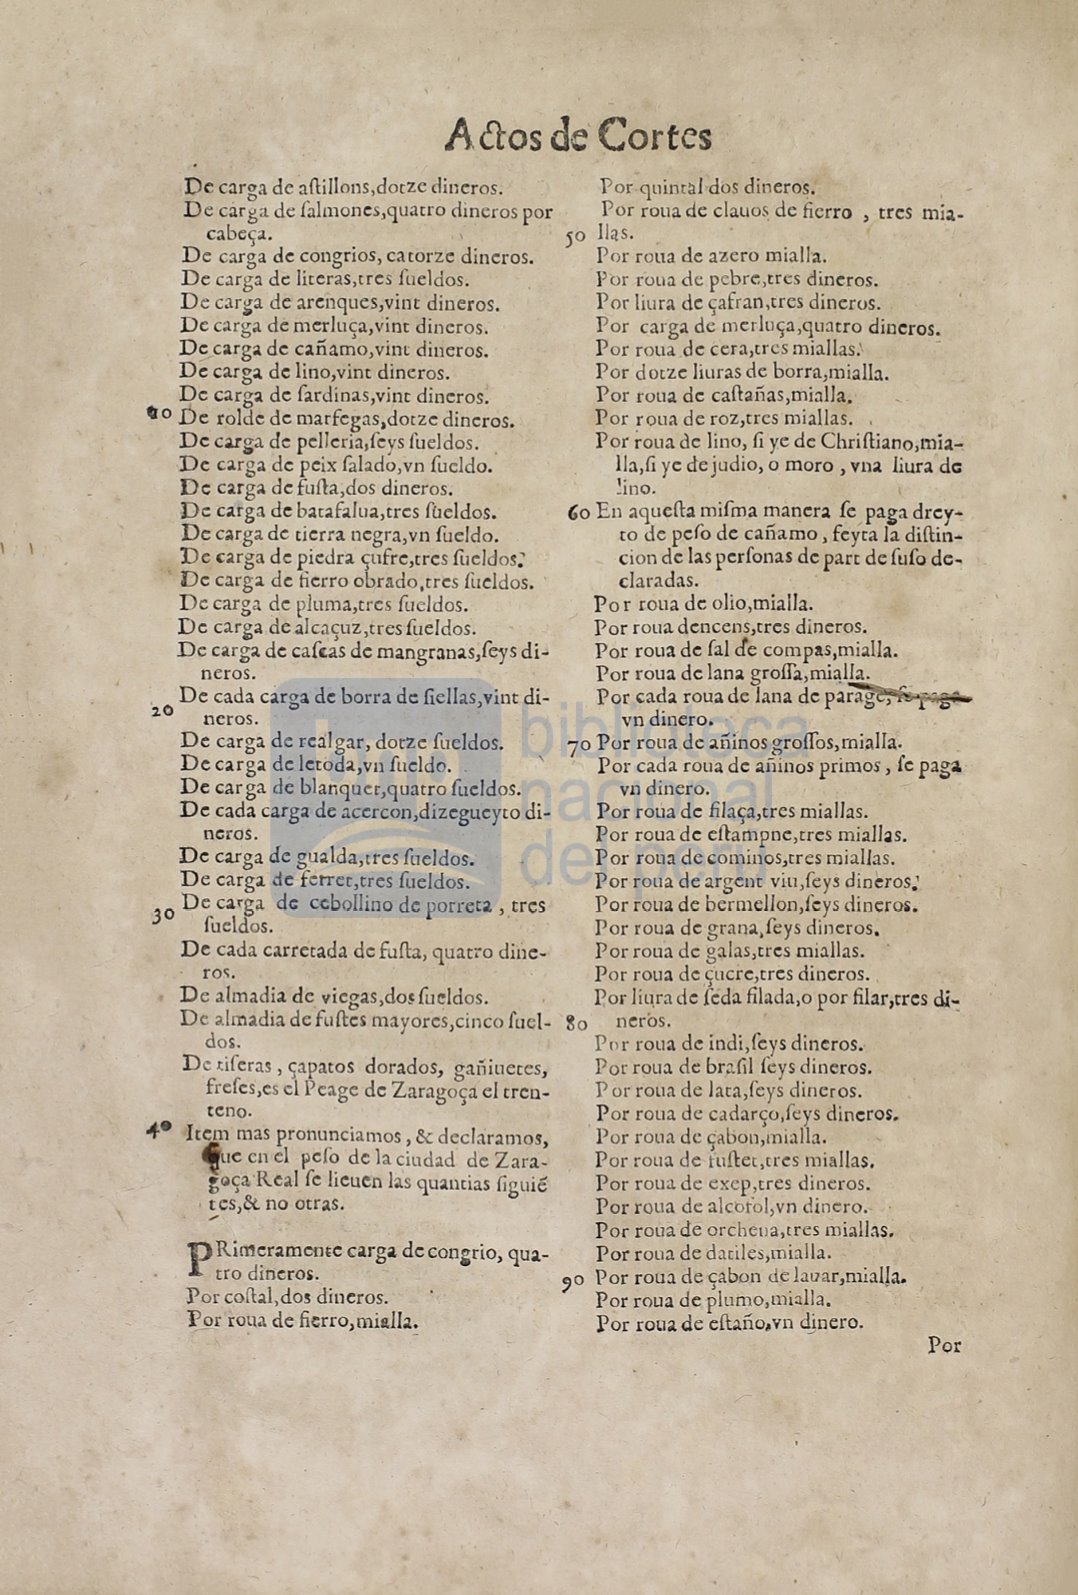 Actos de Cortes
De carga de aſtillons,dotze dineros.
De carga de ſalmones,quatro dineros por
cabeça.
De carga de congrios, catorze dineros.
De carga de literas,tres ſueldos.
De carga de arenques,vint dineros.
De carga de merluça,vint dineros.
De carga de cañamo,vint dineros.
De carga de lino,vint dineros.
De carga de ſardinas,vint dineros.
10 De rolde de marfegas,dotze dineros.
De carga de pelleria,ſeys ſueldos.
De carga de peix ſalado,vn ſueldo.
De carga de fuſta,dos dineros.
De carga de batafalua,tres ſueldos.
De carga de tierra negra,vn ſueldo.
De carga de piedra çufre,tres ſueldos.
De carga de fierro obrado,tres ſueldos.
De carga de pluma,tres ſueldos.
De carga de alcaçuz,tres ſueldos.
De carga de caſcas de mangranas,ſeys di-
neros.
De cada carga de borra de ſiellas,vint di-
20 neros.
De carga de realgar, dotze ſueldos.
De carga de letoda,vn ſueldo.
De carga de blanquet,quatro ſueldos.
De cada carga de acercon,dizegueyto di-
neros.
De carga de gualda,tres ſueldos.
De carga de ferret,tres ſueldos.
30 De carga de cebollino de porreta , tres
ſueldos.
De cada carretada de fuſta, quatro dine-
ros.
De almadia de viegas,dos ſueldos.
De almadia de fuſtes mayores,cinco ſuel-
dos.
De tiſeras , çapatos dorados, gañiuetes,
freſes,es el Peage de Zaragoça el tren-
teno.
40 Item mas pronunciamos , & declaramos,
que en el peſo de la ciudad de Zara-
goça Real ſe lieuen las quantias ſiguiẽ
tes,& no otras.
PRimeramente carga de congrio, qua-
tro dineros.
Por coſtal,dos dineros.
Por roua de fierro,mialla.
Por quintal dos dineros.
Por roua de clauos de fierro , tres mia-
50 llas.
Por roua de azero mialla.
Por roua de pebre,tres dineros.
Por liura de çafran,tres dineros.
Por carga de merluça,quatro dineros.
Por roua de cera,tres miallas.
Por dotze liuras de borra,mialla.
Por roua de caſtañas,mialla.
Por roua de roz,tres miallas.
Por roua de lino, ſi ye de Chriſtiano,mia-
lla,ſi ye de judio, o moro , vna liura de
lino.
60 En aqueſta miſma manera ſe paga drey-
to de peſo de cañamo , feyta la diſtin-
cion de las perſonas de part de ſuſo de-
claradas.
Por roua de olio,mialla.
Por roua dencens,tres dineros.
Por roua de ſal de compas,mialla.
Por roua de lana groſſa,mialla.
Por cada roua de lana de parage, ſe paga
vn dinero.
70 Por roua de añinos groſſos,mialla.
Por cada roua de añinos primos , ſe paga
vn dinero.
Por roua de filaça,tres miallas.
Por roua de eſtampne,tres miallas.
Por roua de cominos,tres miallas.
Por roua de argent viu,ſeys dineros.
Por roua de bermellon,ſeys dineros.
Por roua de grana,ſeys dineros.
Por roua de galas,tres miallas.
Por roua de çucre,tres dineros.
Por liura de ſeda filada,o por filar,tres di-
80 neros.
Por roua de indi,ſeys dineros.
Por roua de braſil ſeys dineros.
Por roua de laca,ſeys dineros.
Por roua de cadarço,ſeys dineros.
Por roua de çabon,mialla.
Por roua de fuſtet,tres miallas.
Por roua de exep,tres dineros.
Por roua de alcofol,vn dinero.
Por roua de orcheua,tres miallas.
Por roua de datiles,mialla.
90 Por roua de çabon de lauar,mialla.
Por roua de plumo,mialla.
Por roua de eſtaño,vn dinero.
Por
biblioteca
nacional
del perú